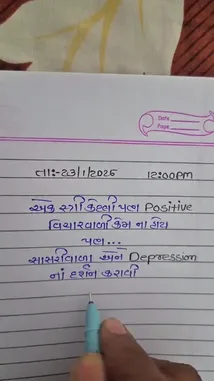 Date
Page
તા:-23/1/2026 12:00PM
એક સ્ત્રી કેટલી પણ Positive
વિચારવાળી કેમ ના હોય
પણ...
સાસરીવાળા એને Depression
નાં દર્શન કરાવી